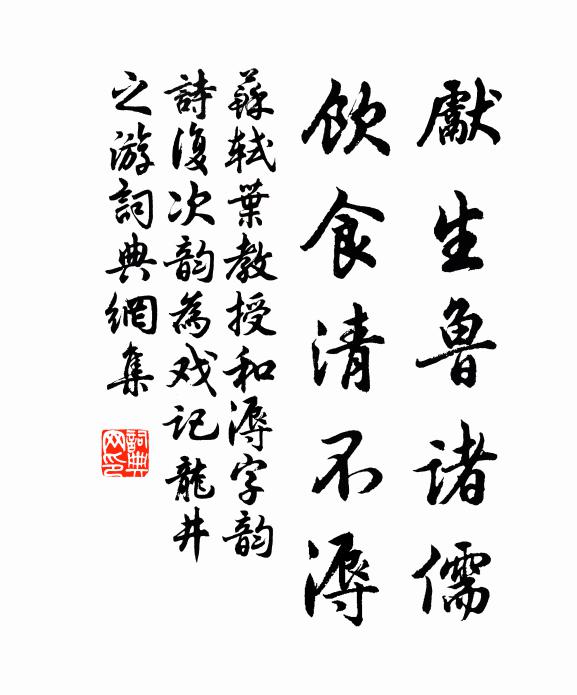 獻生魯諸儒
飲食清不溽
蘇軾葉教授和溽字韵
詩復次韵為戏记龍井
之游詞典網集
詞典
网印